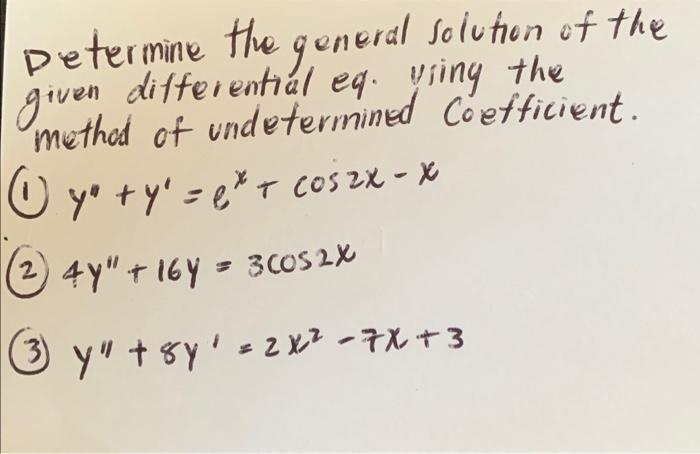 Determine the general solution of the
given differential eq. using the
method of undetermined Coefficient.
① y" + y' = e^x + cos2x - x
② 4y" + 16y = 3cos2x
③ y" + 8y' = 2x² - 7x + 3